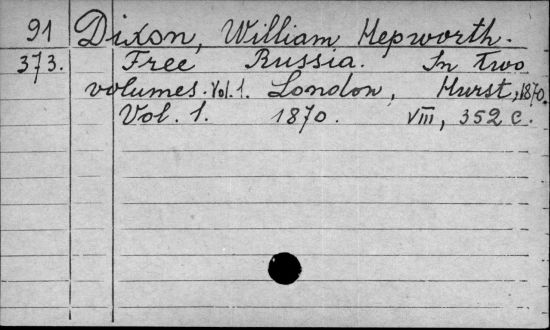 91 Dixon, William Hepworth.
373. Free Russia. In two
volumes. Vol. 1. London, Hurst, 1870.
Vol. 1. 1870. VIII, 352 c.